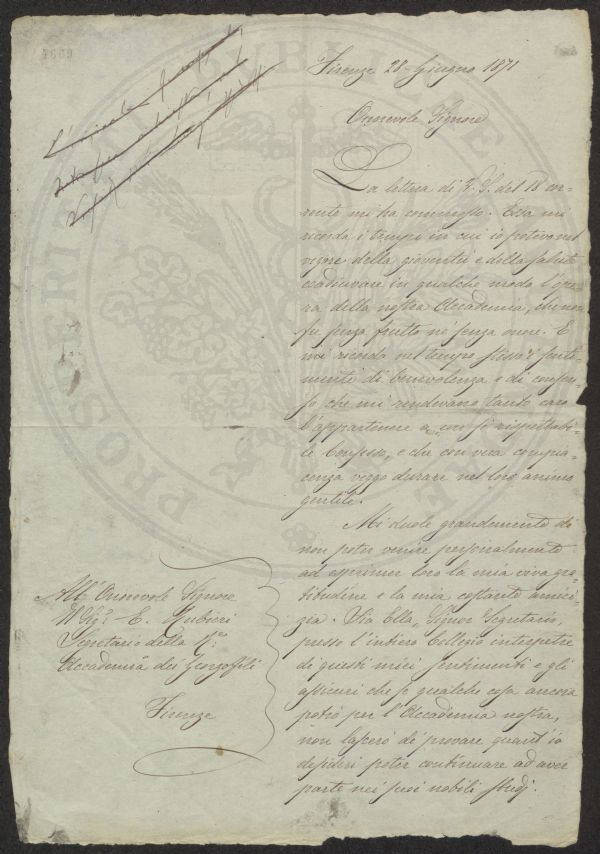 Firenze 28 Giugno 1871
Onorevole Signore
La lettera di V. S. del 18 cor-
rente mi ha commosso. Essa mi
ricorda i tempi in cui io potevo nel
vigore della gioventù e della salute
coadiuvare in qualche modo l'ope-
ra della nostra Accademia, che non
fu senza frutto nè senza onore. E
mi ricorda nel tempo stesso i senti-
menti di benevolenza e di
che mi rendevano tanto caro
l'appartenere a un sì rispettabi-
le Consesso, e che con viva compia-
cenza veggo durare nel loro animo
gentile.
Mi duole grandemente di
non poter venire personalmente
ad esprimer loro la mia viva gra-
titudine e la mia costante amici-
zia. Sia Ella, Signor Segretario,
presso l'intiero Collegio interpetre
di questi miei sentimenti e gli
assicuri che se qualche cosa ancora
potrò per l'Accademia nostra,
non lascerò di provare quant'io
desideri poter continuare ad aver
parte nei suoi nobili studj.
All'Onorevole Signore
Il Sigr. E. Rubieri
Segretario della Ra.
Accademia dei Georgofili
Firenze